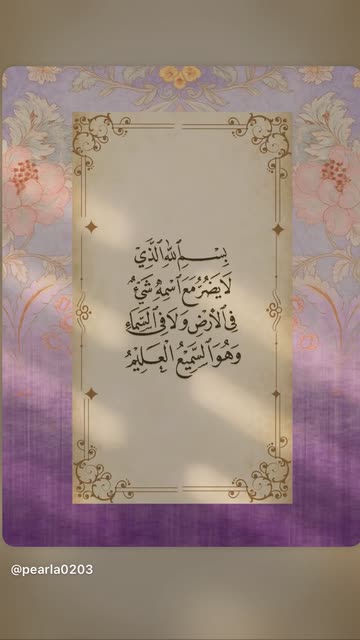 بِسْمِ ٱللهِ ٱلَّذِي
لَا يَضُرُّ مَعَ ٱسْمِهِ شَيْءٌ
فِي ٱلْأَرْضِ وَلَا فِي ٱلسَّمَاءِ
وَهُوَ ٱلسَّمِيعُ ٱلْعَلِيمُ
@pearla0203